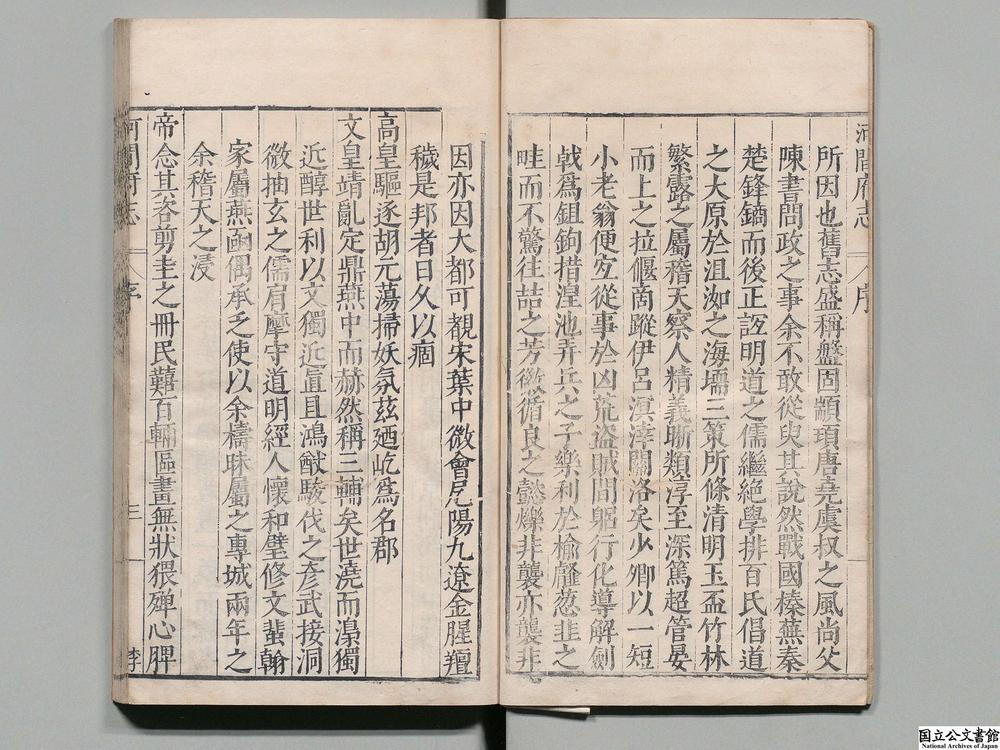 河間府志 序
所因也舊志盛稱盤固顓頊唐堯虞叔之風尚父
陳書問政之事余不敢從臾其說然戰國榛蕪秦
楚鋒鏑而後正誼明道之儒繼絶學排百氏倡道
之大原於沮洳之海壖三策所條清明玉盃竹林
繁露之屬稽天察人精義晰類淳至深篤超管晏
而上之拉偃商蹤伊呂溟涬關洛矣少卿以一短
小老翁便宜從事於凶荒盗賊間躬行化導解劍
戟爲鉏鉤措湟池弄兵之子樂利於榆薤葱韭之
畦而不驚往喆之芳徽循良之懿爍非襲亦襲非
因亦因大都可覩宋葉中微會戹陽九遼金腥羶
穢是邦者日久以痼
高皇驅逐胡元蕩掃妖氛茲廼屹爲名郡
文皇靖亂定鼎燕中而赫然稱三輔矣世澆而瀛獨
近醇世利以文獨近眞且鴻猷駿伐之彦武接洞
微抽玄之儒肩摩守道明經人懷和璧修文輩翰
家屬燕函偶承乏使以余檮昧屬之專城兩年之
余稽天之浸
帝念其咨剪圭之冊民囏百輛區畫無狀猥殫心脾
河間府志 序 三 李
国立公文書館
National Archives of Japan